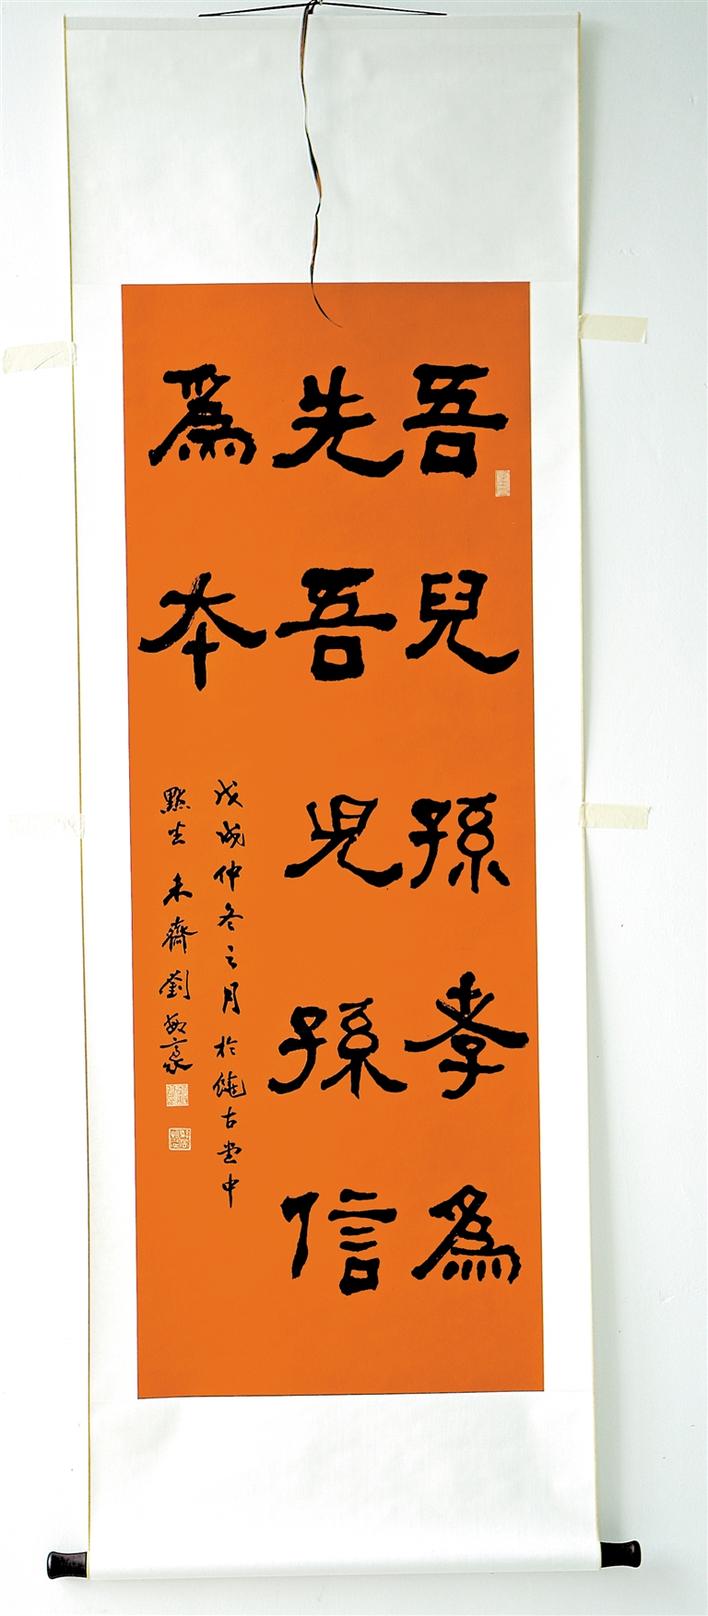 吾兒孫孝為
先吾兒孫信
為本
戊戌仲冬之月於繞古堂中
點生未齋劉敏豪